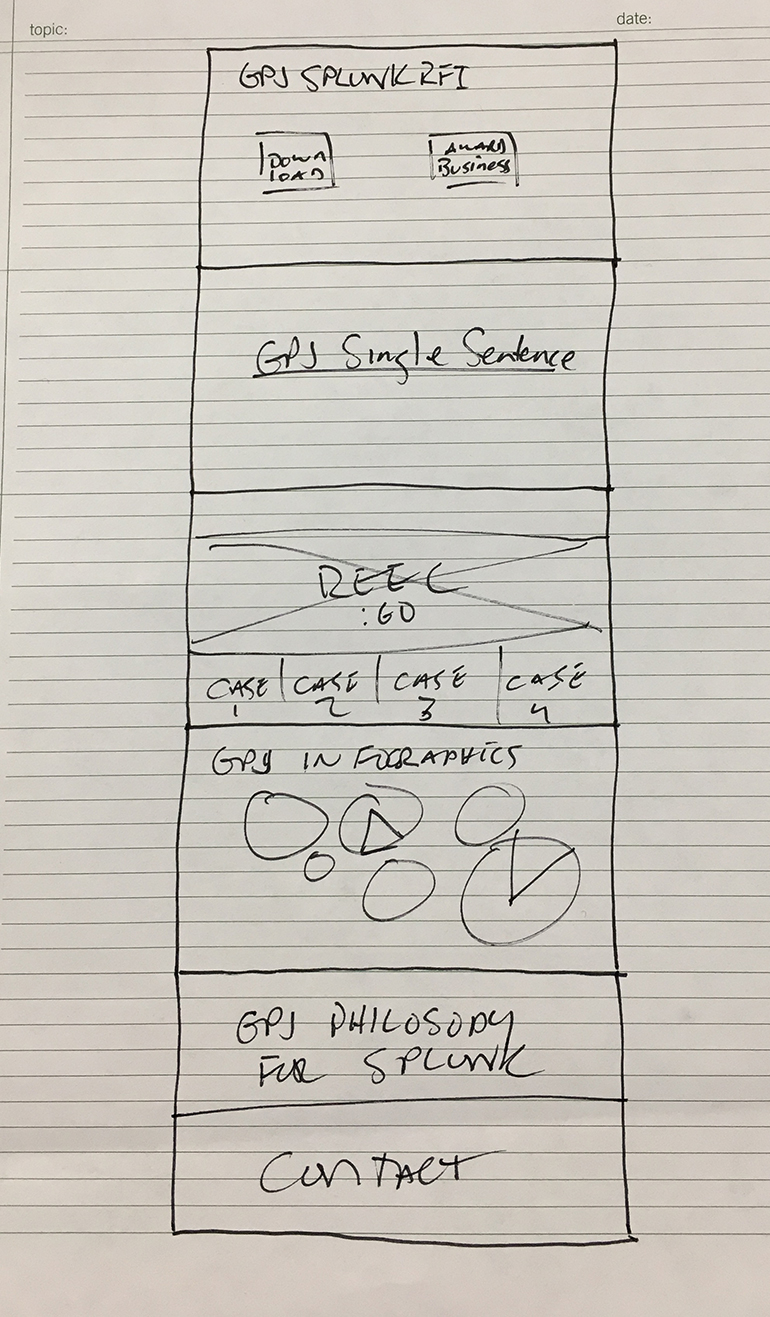 topic:
date:
GPJ SPLUNK RFI
DOWN
LOAD
AWARD
Business
GPJ Single Sentence
REEL
:60
CASE
1
CASE
2
CASE
3
CASE
4
GPJ INFOGRAPHICS
GPJ PHILOSOPY
FOR SPLUNK
CONTACT